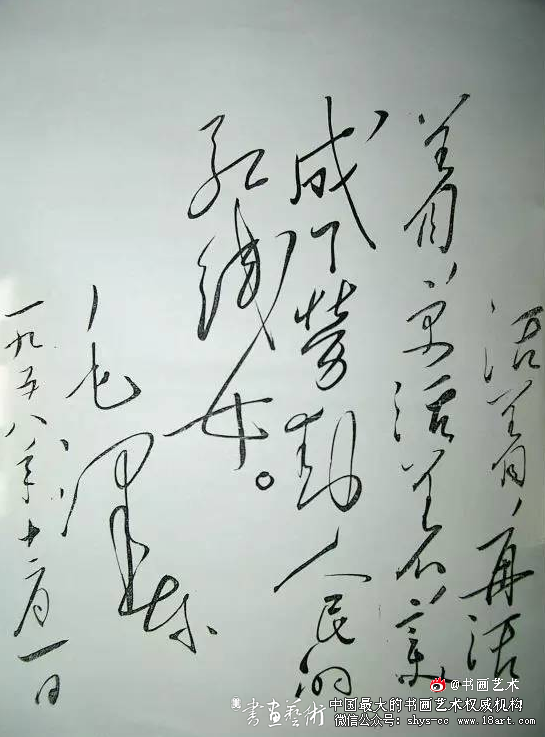 活着，再活
着，更活着，变
成了劳动人民的
红线女。
毛泽东
一九五八年十二月一日
@书画艺术
書畫藝術
中国最大的书画艺术权威机构
微信公众号：shys-cc www.18art.com